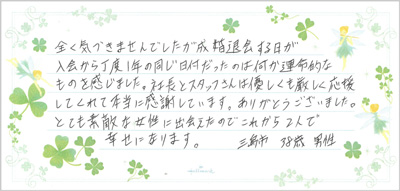 全く気づきませんでしたが成婚退会する日が
入会から丁度1年の同じ日付だったのは何か運命的な
ものを感じました。社長とスタッフさんは優しくも厳しく応援
してくれて本当に感謝しています。ありがとうございました。
とても素敵な女性に出会えたのでこれから2人で
幸せになります。 三島市 38歳 男性